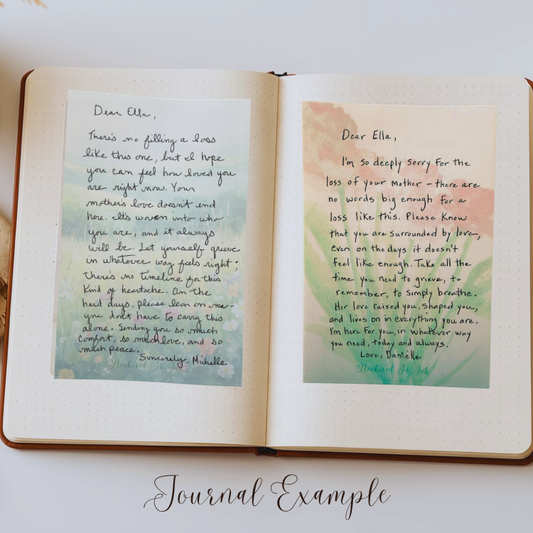 Dear Ella,
There's no filling a loss
like this one, but I hope
you can feel how loved you
are right now. Your
mother's love doesn't end
here. It's woven into who
you are, and it always
will be. Let yourself grieve
in whatever way feels right.
There's no timeline for this
kind of heartache. On the
hard days, please lean on me-
you don't have to carry this
alone. Sending you so much
comfort, so much love, and so
much peace.
Sincerely, Michelle
Dear Ella,
I'm so deeply sorry for the
loss of your mother - there are
no words big enough for a
loss like this. Please know
that you are surrounded by love,
even on the days it doesn't
feel like enough. Take all the
time you need to grieve, to
remember, to simply breathe.
Her love raised you, shaped you,
and lives on in everything you are.
I'm here for you, in whatever way
you need, today and always.
Love, Danielle
Journal Example